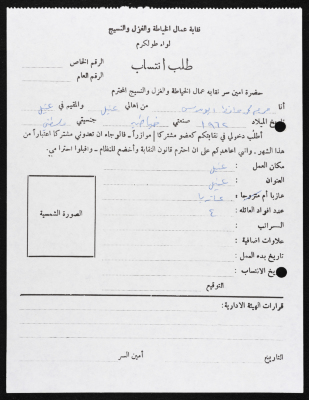 نقابة عمال الخياطة والغزل والنسيج
لواء طولكرم
الرقم الخاص
طلب انتساب
الرقم العام
حضرة امين سر نقابه عمال الخياطة والغزل والنسيج المحترم
أنا من اهالي عتيل والمقيم في عتيل
تاريخ الميلاد صنعتي خياطة جنسيتي
أطلب دخولي في نقابتكم كعضو مشتركا | موازراً - فالرجاء ان تعدوني مشتركا اعتباراً من
هذا الشهر . واني اعاهدكم على ان احترم قانون النقابة وأخضع للنظام . واقبلوا احترامي .
مكان العمل : عتيل
العنوان : عتيل
عازبا أم متزوجا : عازبا
الصورة الشمسية
عدد افراد العائله : ٤
السراتب :
علاوات اضافية :
تاريخ بدء العمل :
تاريخ الانتساب :
التوقيع
قرارات الهيئة الادارية :
التاريخ أمين السر